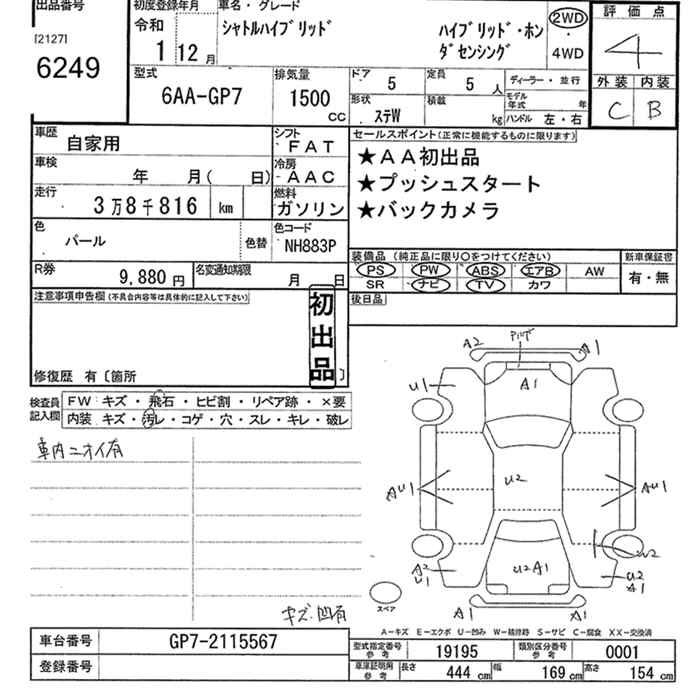 出品番号
[2127]
6249
初度登録年月
令和
1 12月
車名・グレード
シャトルハイブリッド ハイブリッド・ホン
ダセンシング
2WD
4WD
評価点
4
外装 内装
C B
型式
6AA-GP7
排気量
1500
CC
ドア
5
定員
5 人
形状
ステW
積載
kg
ディーラー・並行
モデル年式 年
ハンドル 左・右
車歴
自家用
シフト
FAT
車検
年 月( 日)
冷房
AAC
走行
3万8千816 km
燃料
ガソリン
色
パール
色替
色コード
NH883P
R券
9,880円
名変通知期限
月 日
セールスポイント(正常に機能するものに限ります)
★AA初出品
★プッシュスタート
★バックカメラ
装備品 (純正品に限り〇をつけてください)
PS PW ABS エアB AW
SR ナビ TV カワ
新車保証書
有・無
後日品
注意事項申告欄(不具合内容等は具体的に記入して下さい)
初出品
修復歴 有〔箇所 〕
検査員
記入欄
FW キズ・飛石・ヒビ割・リペア跡・×要
内装 キズ・汚レ・コゲ・穴・スレ・キレ・破レ
車内ニオイ有
キズ凹有
A2
A1
U1
A1
AU1
U2
AU1
A2
U1
U2A1
U2
U2
A1
A1
A1
スペア
A-キズ E-エクボ U-凹み W-補修跡 S-サビ C-腐食 XX-交換済
車台番号
GP7-2115567
登録番号
型式指定番号
参考
19195
類別区分番号
参考
0001
車庫証明用
参考
長さ
444 cm
幅
169 cm
高さ
154 cm